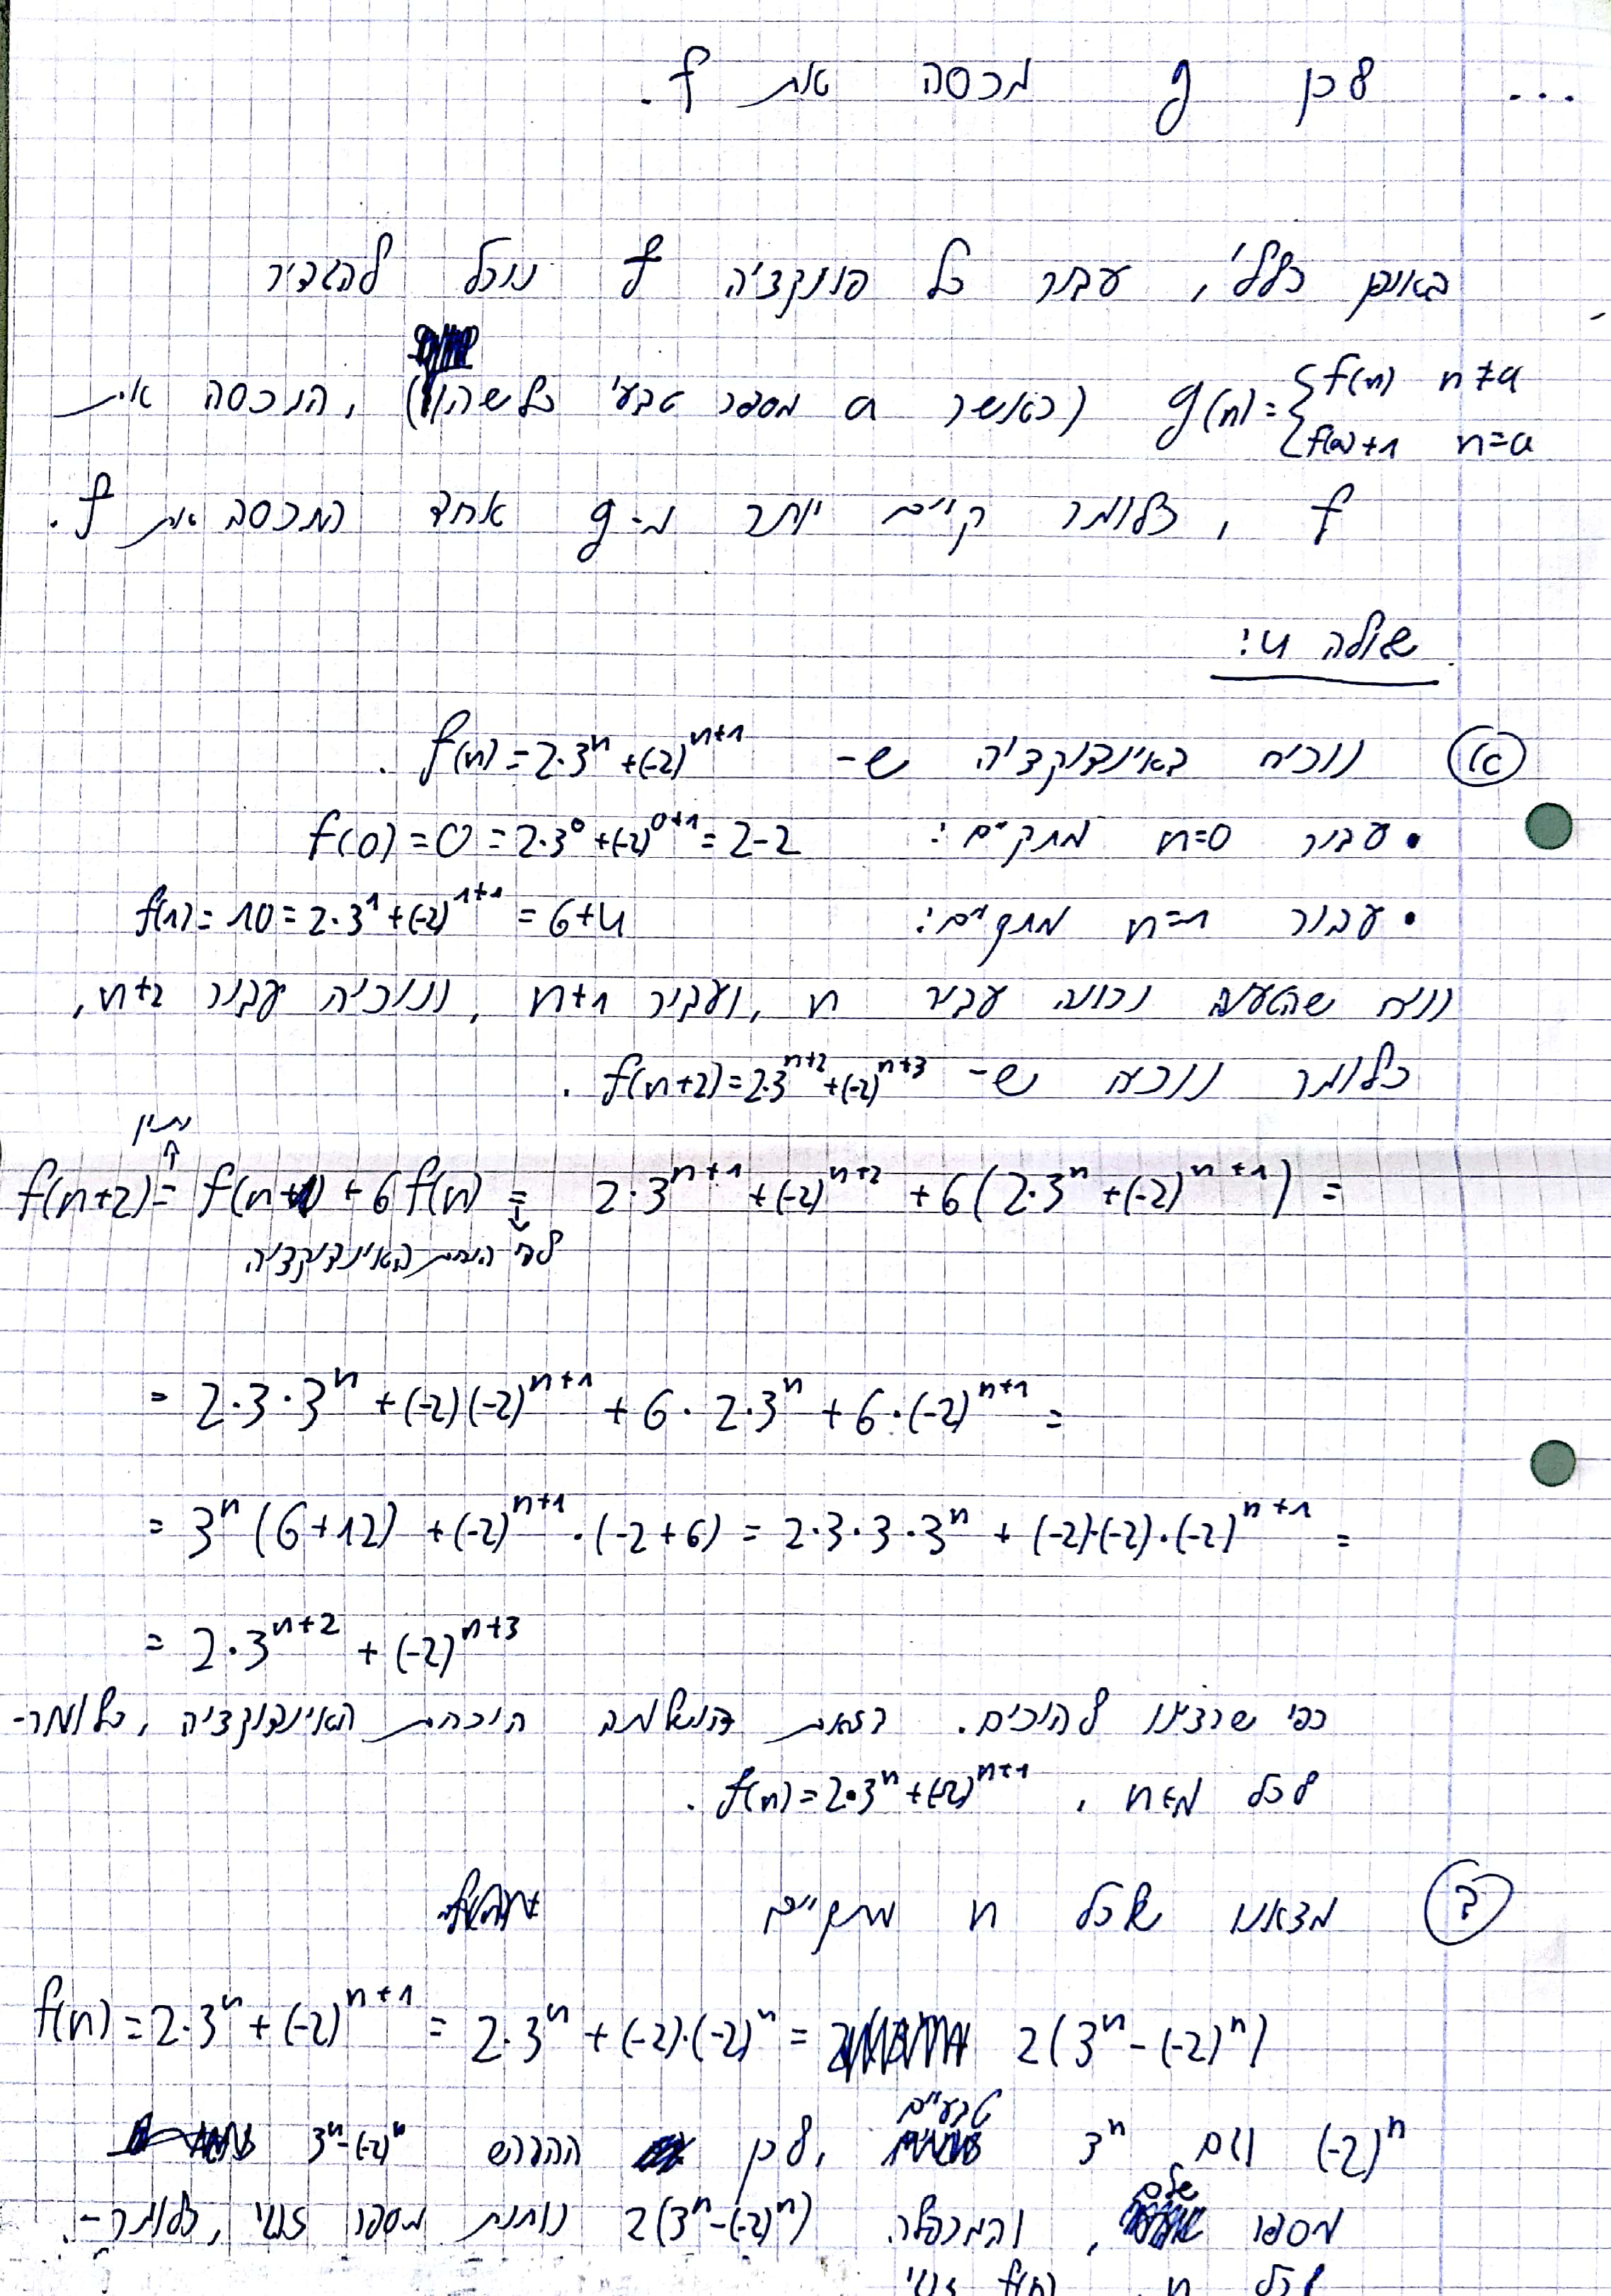 ... לכן g מכסה את f.
באופן כללי, עבור כל פונקציה f נוכל להגדיר
g(n)={f(n) n≠a (כאשר a מספר טבעי כלשהו), המכסה את
f(a)+1 n=a
f, כלומר קיים יותר מ-g אחד המכסה את f.
שאלה 4:
א) נוכיח באינדוקציה ש- f(n)=2·3^n+(-2)^{n+1}.
• עבור n=0 מתקיים: f(0)=0=2·3^0+(-2)^{0+1}=2-2
• עבור n=1 מתקיים: f(1)=10=2·3^1+(-2)^{1+1}=6+4
נניח שהטענה נכונה עבור n, ועבור n+1, ונוכיח עבור n+2,
כלומר נוכיח ש- f(n+2)=2·3^{n+2}+(-2)^{n+3}.
נתון
f(n+2)=f(n+1)+6f(n)=2·3^{n+1}+(-2)^{n+2}+6(2·3^n+(-2)^{n+1})=
לפי הנחת האינדוקציה
=2·3·3^n+(-2)(-2)^{n+1}+6·2·3^n+6·(-2)^{n+1}=
=3^n(6+12)+(-2)^{n+1}·(-2+6)=2·3·3·3^n+(-2)·(-2)·(-2)^{n+1}=
=2·3^{n+2}+(-2)^{n+3}
כפי שרצינו להוכיח. בזאת הושלמה הוכחת האינדוקציה, כלומר-
לכל n∈N, f(n)=2·3^n+(-2)^{n+1}.
ב) מצאנו שלכל n מתקיים
f(n)=2·3^n+(-2)^{n+1}=2·3^n+(-2)·(-2)^n= 2(3^n-(-2)^n)
(-2)^n וגם 3^n טבעיים, לכן ההפרש 3^n-(-2)^n
מספר שלם, והמכפלה 2(3^n-(-2)^n) נותנת מספר זוגי, כלומר-
לכל n f(n) זוגי